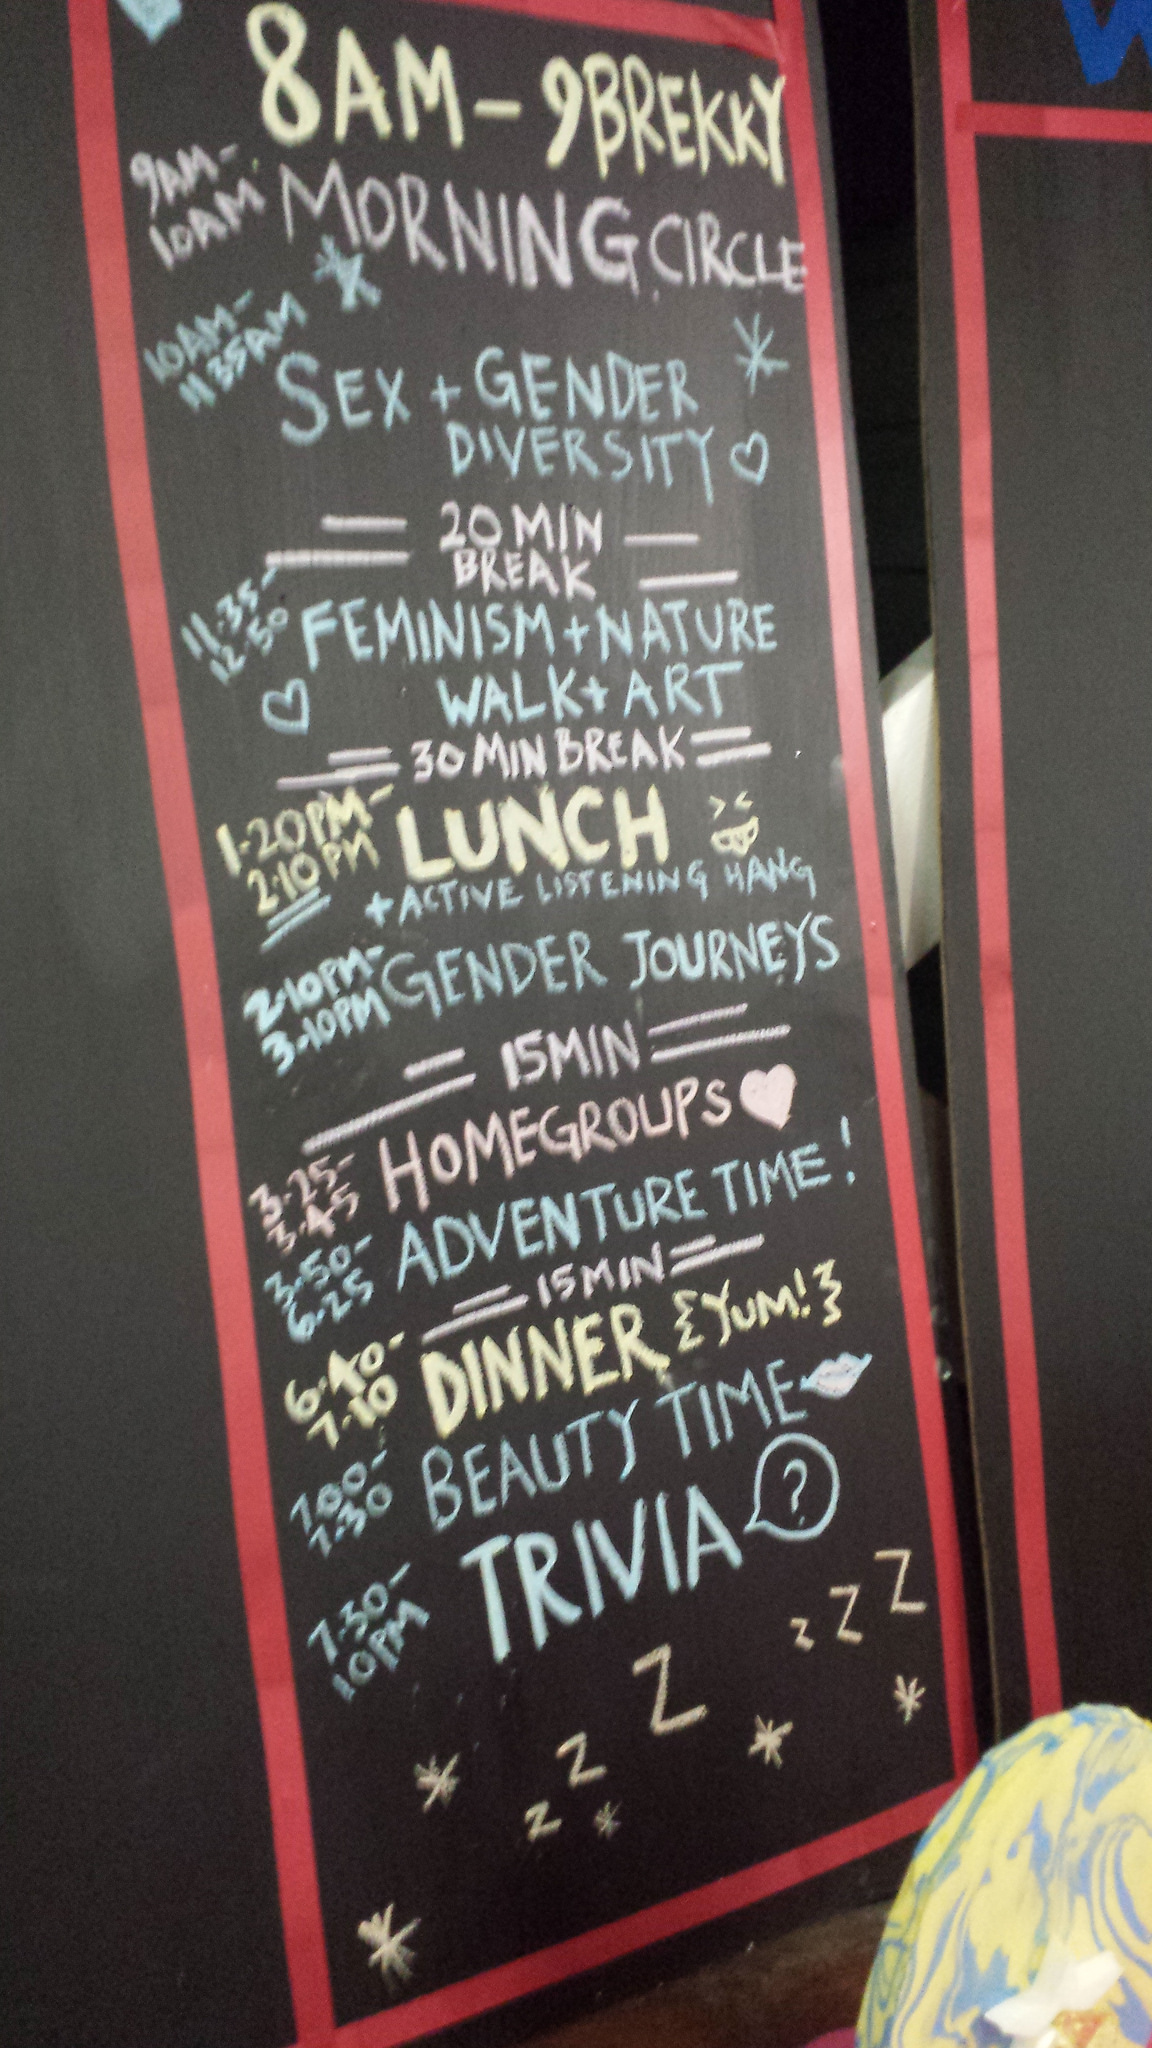 8AM - 9 BREKKY
9AM-
10AM
MORNING CIRCLE
10AM-
11 35AM
SEX + GENDER
DIVERSITY
20 MIN
BREAK
11.35-
12.50
FEMINISM + NATURE
WALK + ART
30 MIN BREAK
1.20PM-
2.10PM
LUNCH
+ ACTIVE LISTENING HANG
2.10PM-
3.10PM
GENDER JOURNEYS
15 MIN
3.25-
3.45
HOMEGROUPS
3.50-
6.25
ADVENTURE TIME!
15 MIN
6.40-
7.10
DINNER {YUM!}
7.00-
7.30
BEAUTY TIME
7.30-
10PM
TRIVIA ?
z Z Z
Z
Z
z
W